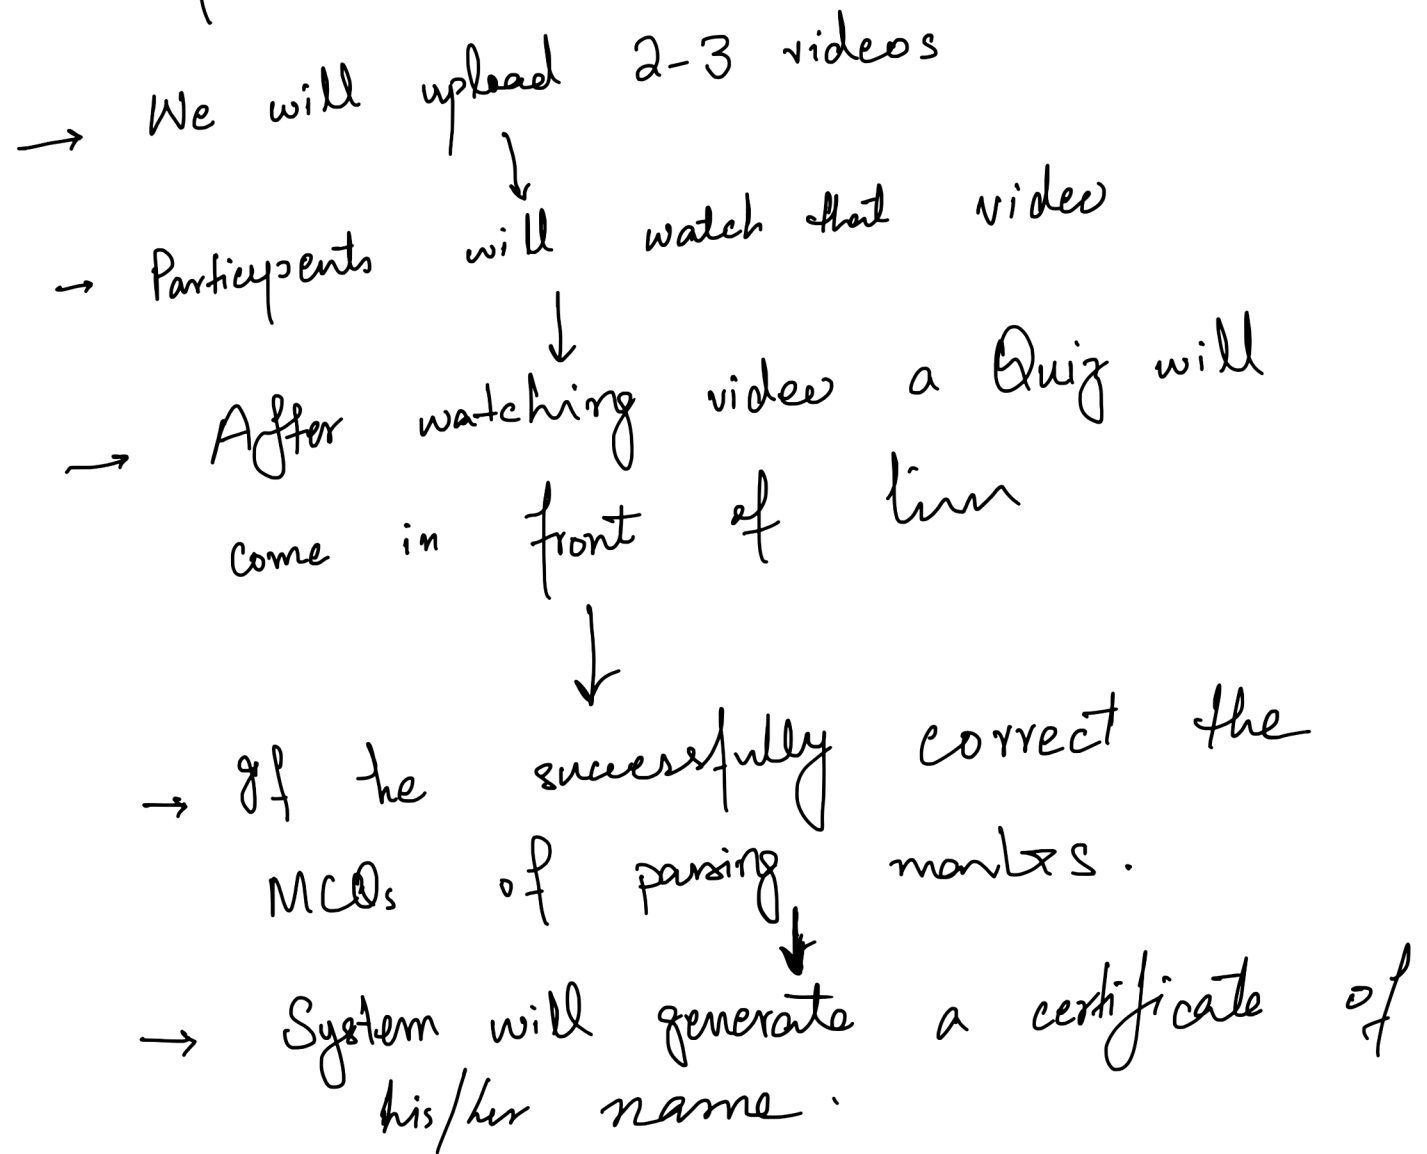 → We will upload 2-3 videos
↓
→ Participents will watch that video
↓
→ After watching video a Quiz will
come in front of
↓
→ If he successfully correct the
MCQs of passing marks.
↓
→ System will generate a certificate of
his/her name.